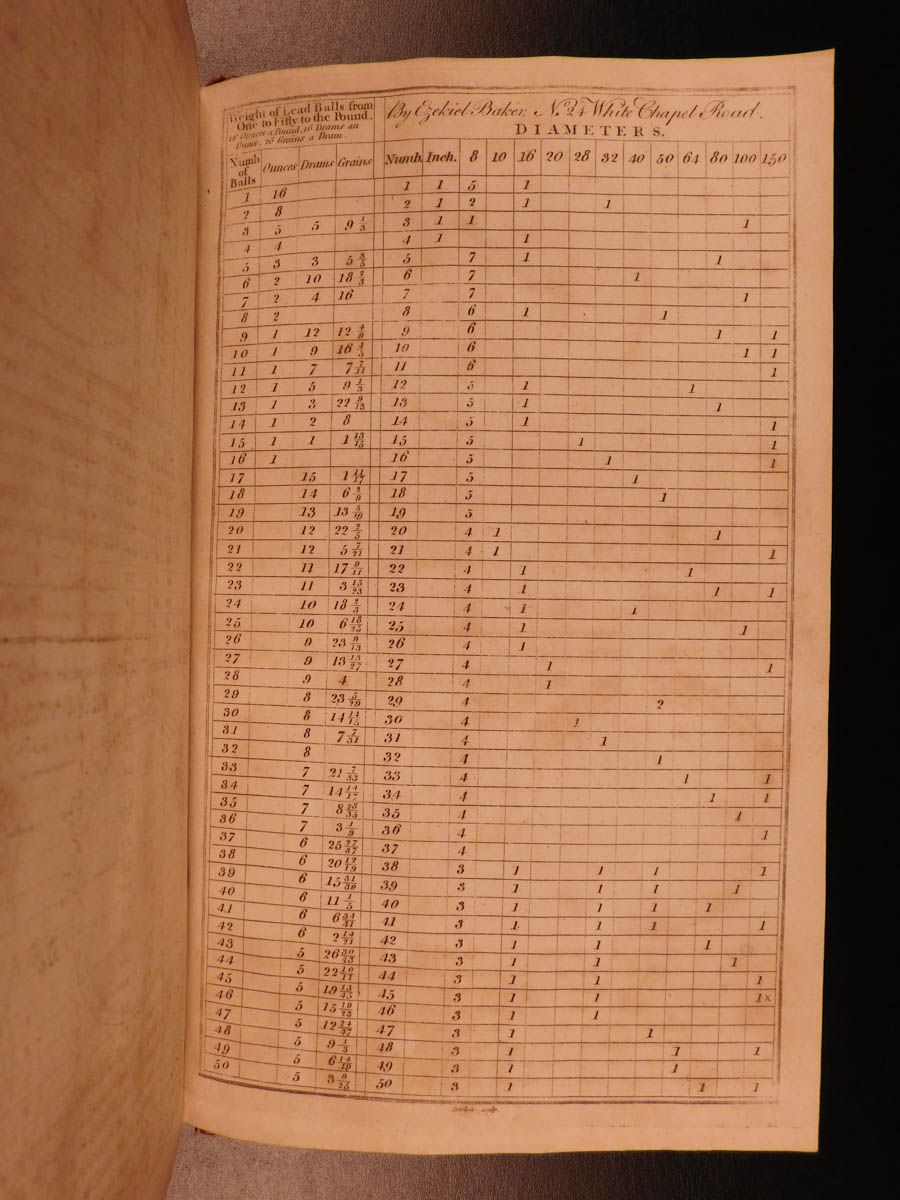 Weight of Lead Balls from
One to Fifty to the Pound.
16 Ounces a Pound, 16 Drams an
Ounce, 28 Grains a Dram.
By Ezekiel Baker, No. 24 White Chapel Road.
DIAMETERS.
Numb. of Balls Ounces Drams Grains Numb. Inch. 8 10 16 20 28 32 40 50 64 80 100 150
1 16 1 1 5 1
2 8 2 1 2 1 1
3 5 5 9 1/3 3 1 1 1
4 4 4 1 1
5 3 3 5 3/5 5 7 1 1
6 2 10 18 2/3 6 7 1
7 2 4 16 7 7 1
8 2 8 6 1 1
9 1 12 12 4/9 9 6 1 1
10 1 9 16 4/5 10 6 1 1
11 1 7 7 7/11 11 6 1
12 1 5 9 1/3 12 5 1 1
13 1 3 22 9/13 13 5 1 1
14 1 2 8 14 5 1 1
15 1 1 1 13/15 15 5 1 1
16 1 16 5 1 1
17 15 1 11/17 17 5 1
18 14 6 2/9 18 5 1
19 13 13 5/19 19 5
20 12 22 2/5 20 4 1 1
21 12 5 7/21 21 4 1 1
22 11 17 9/11 22 4 1 1
23 11 3 15/23 23 4 1 1 1
24 10 18 2/3 24 4 1 1
25 10 6 18/25 25 4 1 1
26 9 23 9/13 26 4 1
27 9 13 13/27 27 4 1 1
28 9 4 28 4 1
29 8 23 5/29 29 4 2
30 8 14 14/15 30 4 1
31 8 7 7/31 31 4 1
32 8 32 4 1
33 7 21 7/33 33 4 1 1
34 7 14 14/17 34 4 1 1
35 7 8 23/35 35 4 1
36 7 3 1/9 36 4 1
37 6 25 27/37 37 4
38 6 20 12/19 38 3 1 1 1 1
39 6 15 31/39 39 3 1 1 1 1
40 6 11 1/5 40 3 1 1 1 1
41 6 6 34/41 41 3 1 1 1 1
42 6 2 14/21 42 3 1 1 1
43 5 26 30/43 43 3 1 1 1
44 5 22 10/11 44 3 1 1 1
45 5 19 13/45 45 3 1 1 1×
46 5 15 19/23 46 3 1 1
47 5 12 24/47 47 3 1 1
48 5 9 1/3 48 3 1 1 1
49 5 6 14/49 49 3 1 1
50 5 3 9/25 50 3 1 1 1